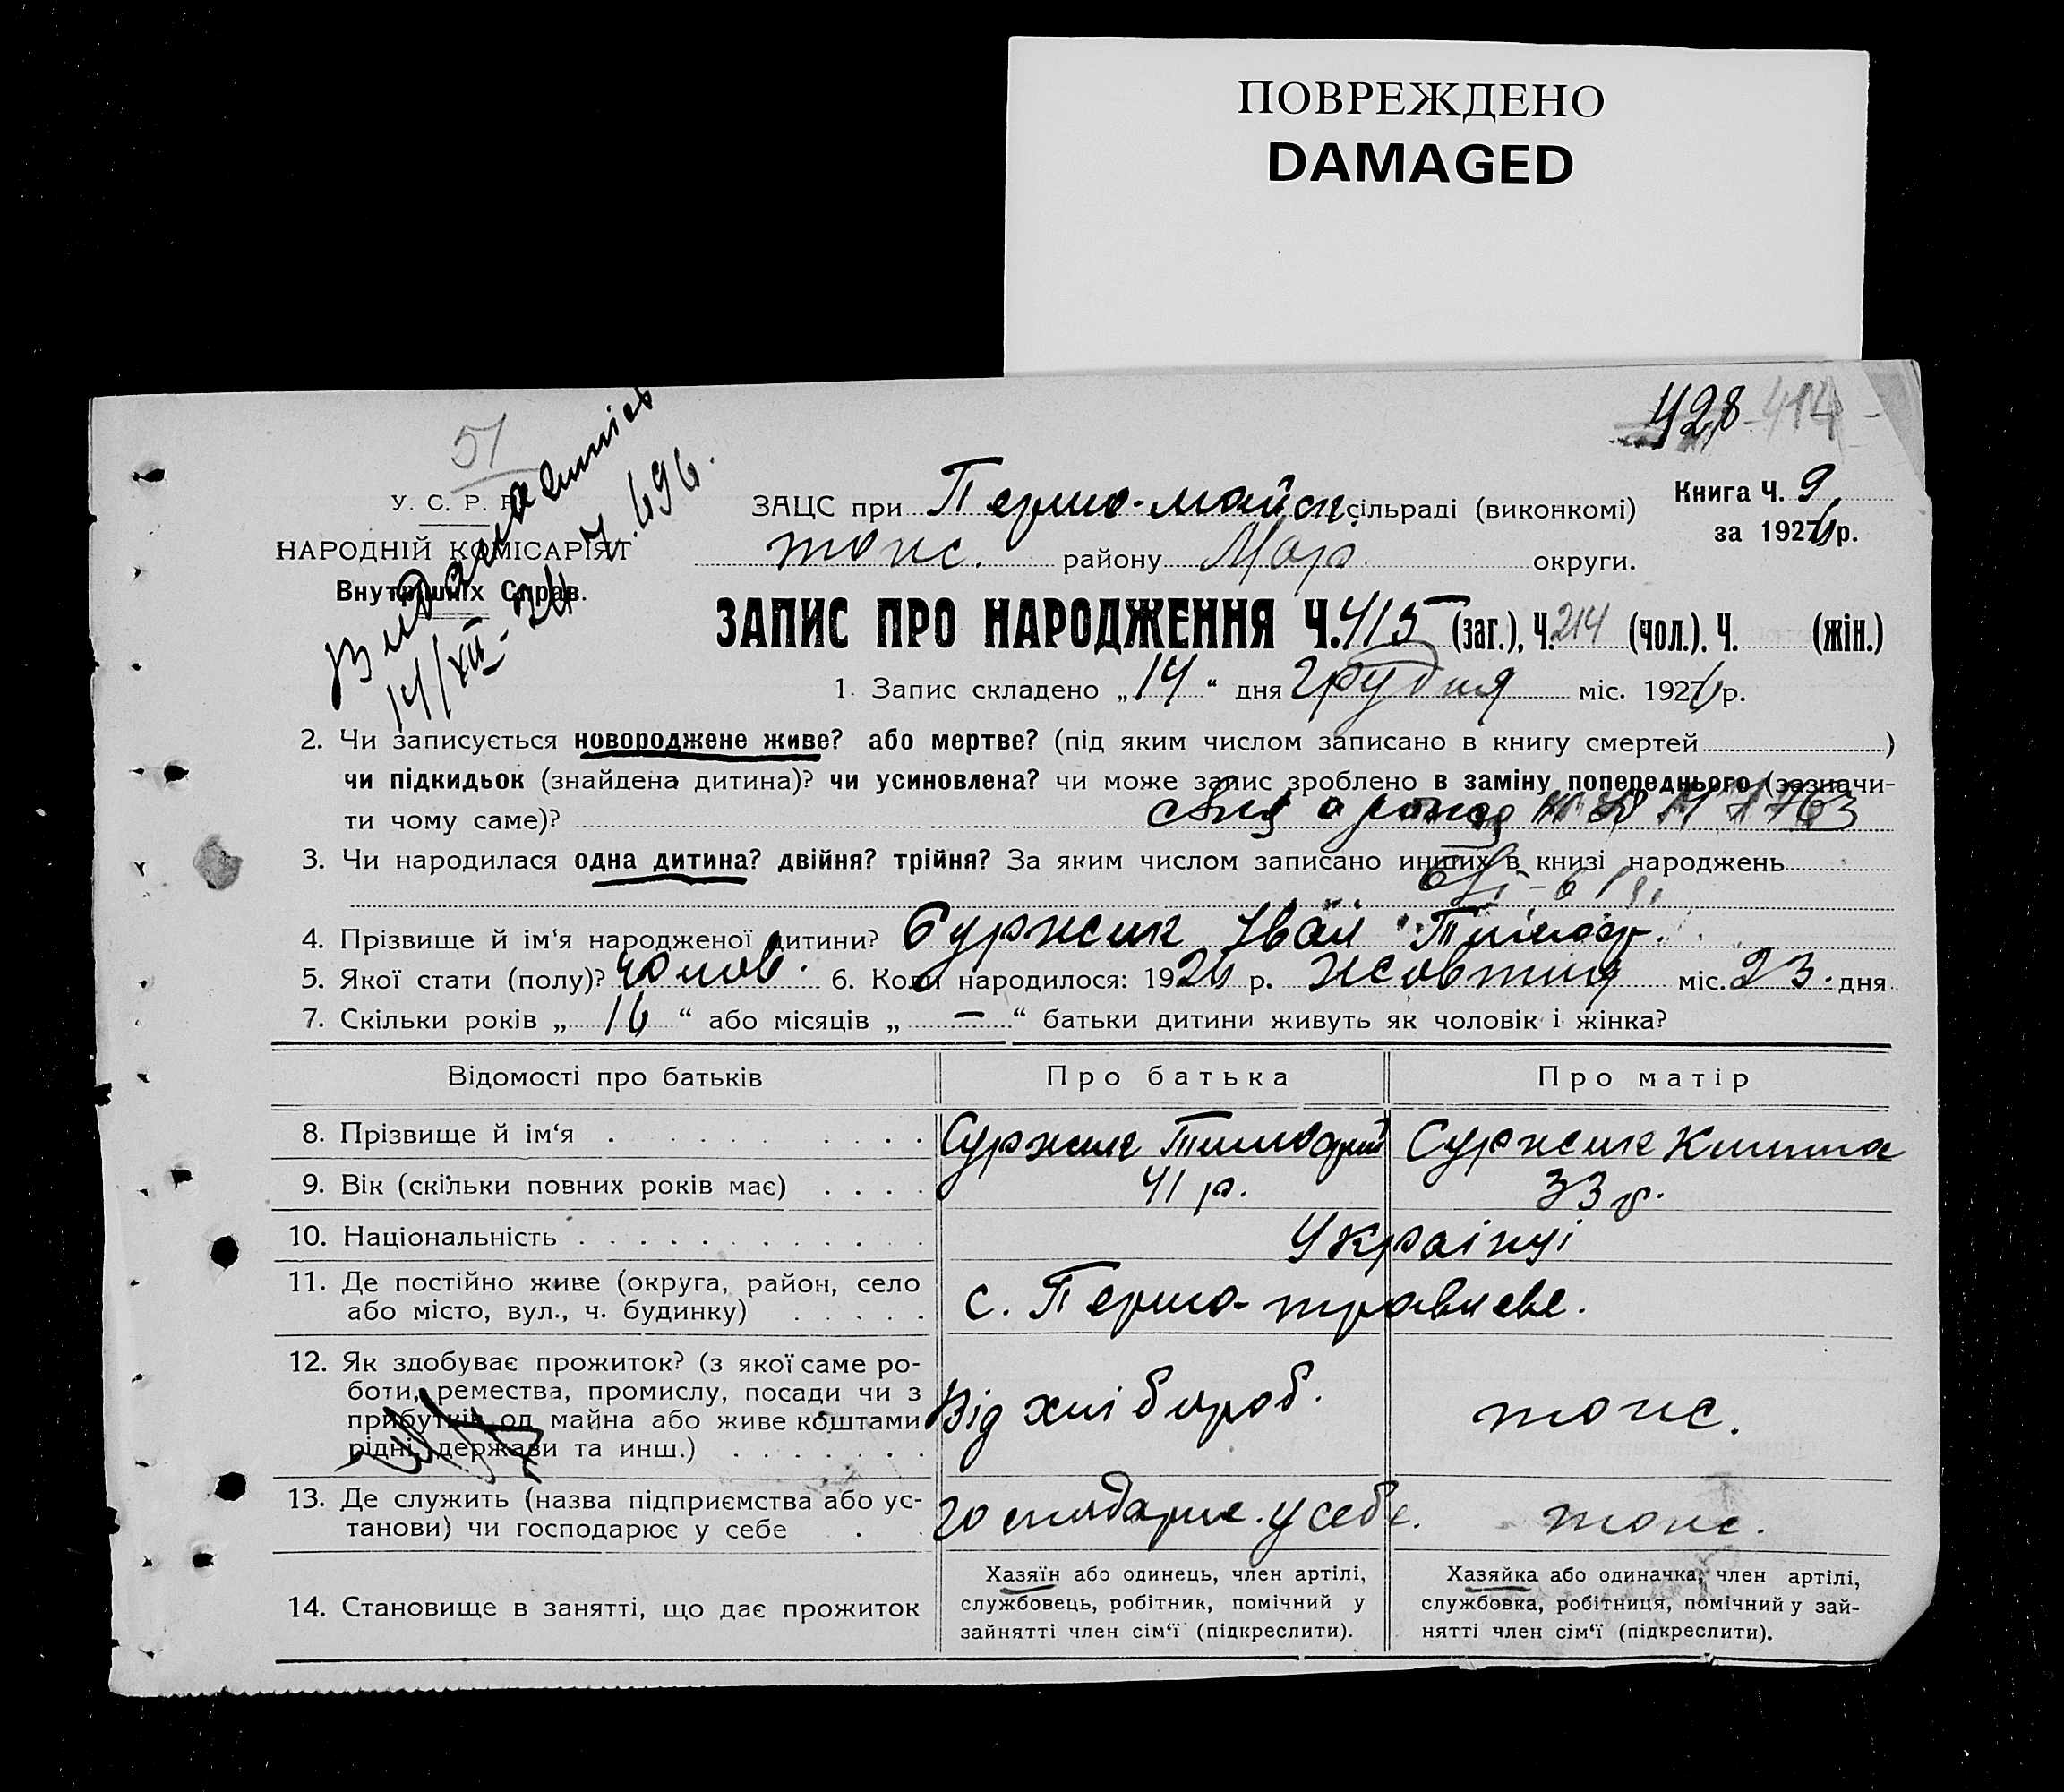 ПОВРЕЖДЕНО
DAMAGED
428 414
51
У. С. Р. Р.
НАРОДНІЙ КОМІСАРІЯТ
Внутрішніх Справ.
14/XII-26 ч. 696.
ЗАЦС при Першо-майск. сільраді (виконкомі)
Книга Ч. 9
за 1926 р.
тоис. району Мар. округи.
ЗАПИС ПРО НАРОДЖЕННЯ Ч. 415 (заг.), Ч. 214 (чол.). Ч. (жін.)
1. Запис складено „14“ дня грудня міс. 1926 р.
2. Чи записується новороджене живе? або мертве? (під яким числом записано в книгу смертей )
чи підкидьок (знайдена дитина)? чи усиновлена? чи може запис зроблено в заміну попереднього (зазначи-
ти чому саме)?
3. Чи народилася одна дитина? двійня? трійня? За яким числом записано инших в книзі народжень
4. Прізвище й ім‘я народженої дитини? Суржик Іван Тимоф.
5. Якої стати (полу)? чолов. 6. Коли народилося: 1926 р. жовтня міс. 23. дня
7. Скільки років „16“ або місяців „—“ батьки дитини живуть як чоловік і жінка?
Відомості про батьків Про батька Про матір
8. Прізвище й ім‘я Суржик Тимофий Суржик
9. Вік (скільки повних років має) 41 р. 33 р.
10. Національність Українці
11. Де постійно живе (округа, район, село
або місто, вул., ч. будинку) с. Першо-травневе.
12. Як здобуває прожиток? (з якої саме ро-
боти, ремества, промислу, посади чи з
прибутків од майна або живе коштами
рідні, держави та инш.) Від хліборoб. тоис.
13. Де служить (назва підприємства або ус-
танови) чи господарює у себе господарює. у себе. тоис.
14. Становище в занятті, що дає прожиток
Хазяїн або одинець, член артілі,
службовець, робітник, помічний у
зайнятті член сім‘ї (підкреслити).
Хазяйка або одиначка, член артілі,
службовка, робітниця, помічний у зай-
нятті член сім‘ї (підкреслити).